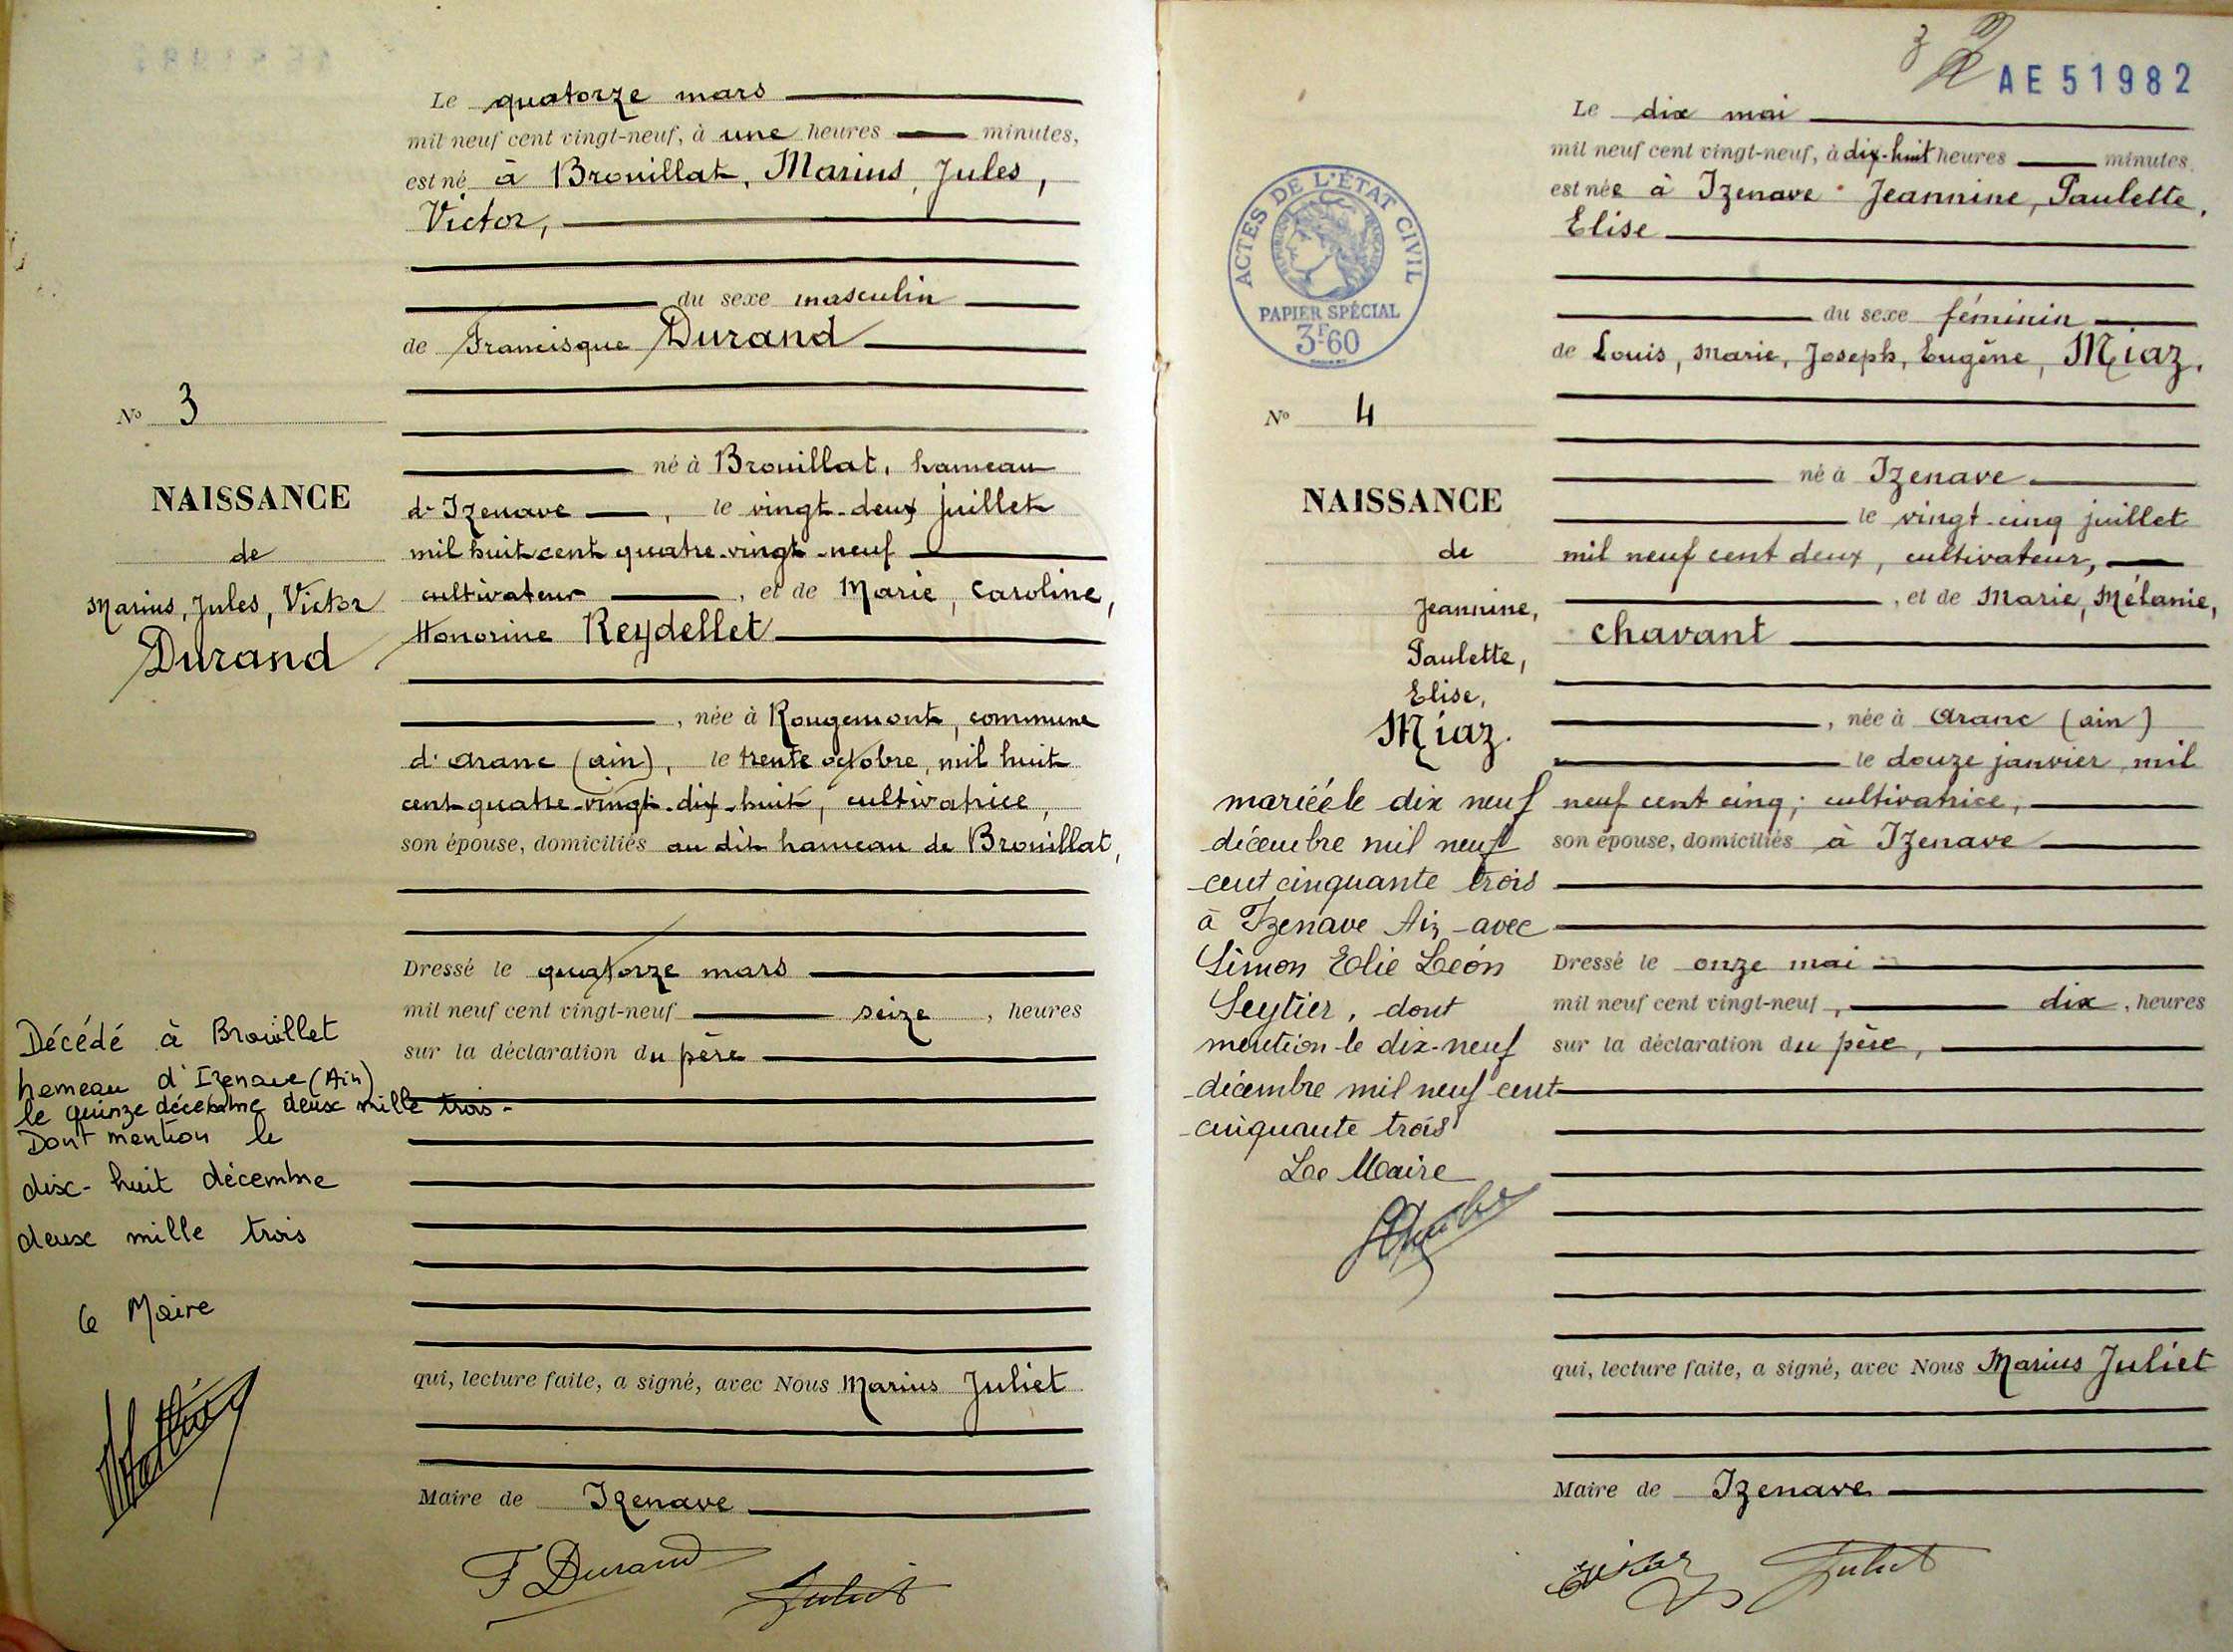 Le quatorze mars
mil neuf cent vingt-neuf, à une heures minutes,
est né à Brouillat, Marius, Jules,
Victor,
du sexe masculin
de Francisque Durand
No 3
né à Brouillat, hameau
NAISSANCE
d'Izenave, le vingt-deux juillet
de
mil huit cent quatre-vingt-neuf
Marius, Jules, Victor
Durand
cultivateur, et de Marie, Caroline,
Honorine Reydellet
, née à Rougemont, commune
d'Aranc (Ain), le trente octobre, mil huit
cent quatre-vingt-dix-huit, cultivatrice,
son épouse, domiciliés au dit hameau de Brouillat,
Dressé le quatorze mars
mil neuf cent vingt-neuf seize, heures
sur la déclaration du père
Décédé à Brouillet
hameau d'Izenave (Ain)
le quinze décembre deux mille trois -
Dont mention le
dix-huit décembre
deux mille trois
Le Maire
qui, lecture faite, a signé, avec Nous Marius Juliet
Maire de Izenave
F Durand
Juliet
3
AE 51982
ACTES DE L'ÉTAT CIVIL
RÉPUBLIQUE FRANÇAISE
PAPIER SPÉCIAL
3F60
Le dix mai
mil neuf cent vingt-neuf, à dix-huit heures minutes
est née à Izenave Jeannine, Paulette,
Elise
du sexe féminin
de Louis, Marie, Joseph, Eugène, Miaz.
No 4
né à Izenave
NAISSANCE
le vingt-cinq juillet
de
mil neuf cent deux, cultivateur,
Jeannine,
Paulette,
Elise,
Miaz.
, et de Marie, Mélanie,
Chavant
, née à Aranc (Ain)
le douze janvier mil
neuf cent cinq; cultivatrice,
son épouse, domiciliés à Izenave
Dressé le onze mai
mil neuf cent vingt-neuf, dix, heures
sur la déclaration du père,
mariée le dix neuf
décembre mil neuf
cent cinquante trois
à Izenave Ain avec
Simon Elie Léon
Seytier, dont
mention le dix-neuf
décembre mil neuf cent
cinquante trois
Le Maire
qui, lecture faite, a signé, avec Nous Marius Juliet
Maire de Izenave
Juliet